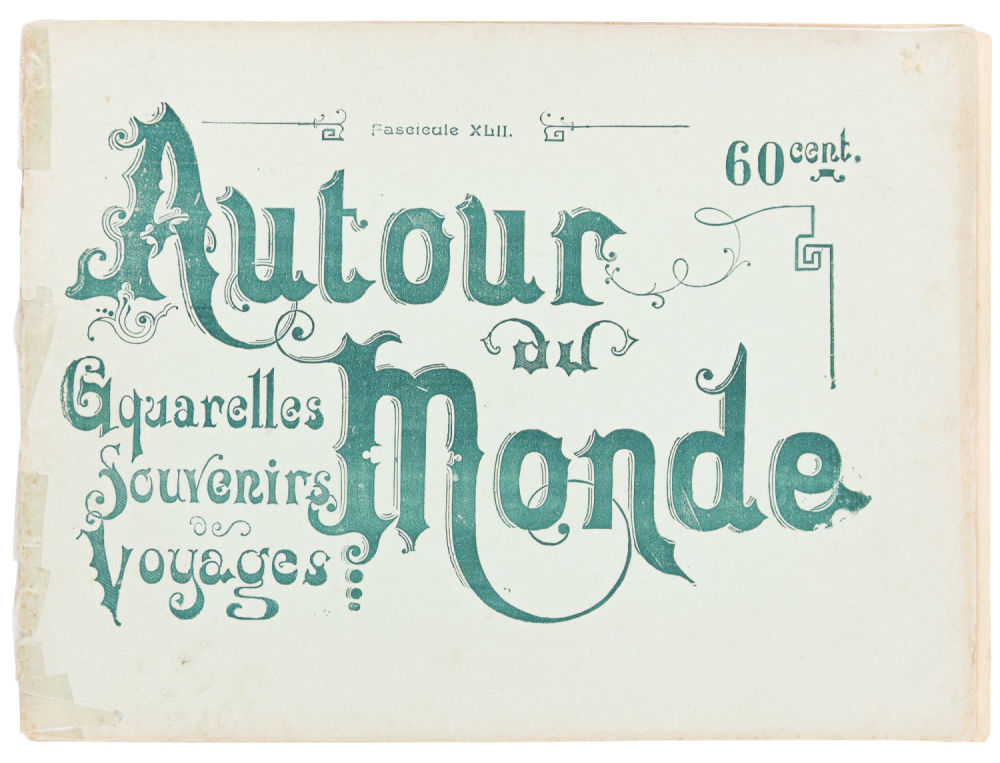 Fascicule XLII.
60 cent.
Autour
du
Monde
Aquarelles
Souvenirs
de
Voyages